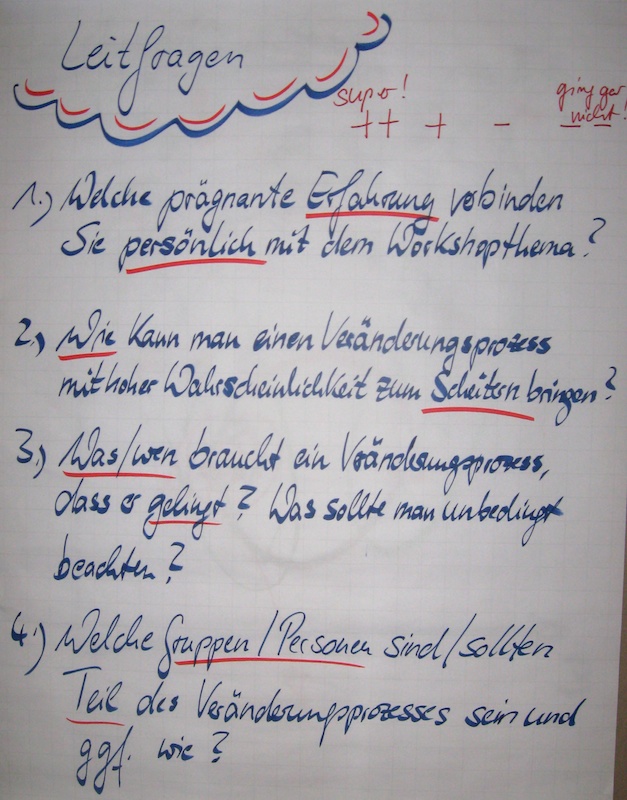 Leitfragen
super! ging gar
++ + - nicht!
1.) Welche prägnante Erfahrung verbinden
Sie persönlich mit dem Workshopthema?
2.) Wie kann man einen Veränderungsprozess
mit hoher Wahrscheinlichkeit zum Scheitern bringen?
3.) Was/wen braucht ein Veränderungsprozess,
dass er gelingt? Was sollte man unbedingt
beachten?
4.) Welche Gruppen/Personen sind/sollten
Teil des Veränderungsprozesses sein und
ggf. wie?